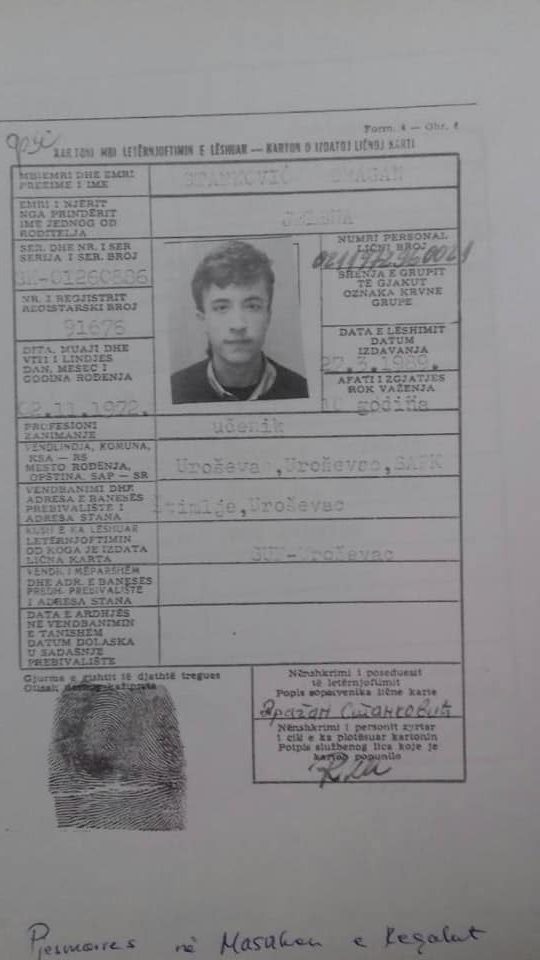 Form. 4 — Obr. 4
KARTONI MBI LETËRNJOFTIMIN E LËSHUAR — KARTON O IZDATOJ LIČNOJ KARTI
MBIEMRI DHE EMRI
PREZIME I IME
STANKOVIĆ DRAGAN
EMRI I NJËRIT
NGA PRINDËRIT
IME JEDNOG OD
RODITELJA
JELENA
SER. DHE NR. I SER
SERIJA I SER. BROJ
NR. I REGJISTRIT
REGISTARSKI BROJ
91676
DITA, MUAJI DHE
VITI I LINDJES
DAN, MESEC I
GODINA ROĐENJA
02.11.1972.
NUMRI PERSONAL
LIČNI BROJ
SHENJA E GRUPIT
TË GJAKUT
OZNAKA KRVNE
GRUPE
DATA E LËSHIMIT
DATUM
IZDAVANJA
AFATI I ZGJATJES
ROK VAŽENJA
10 godina
PROFESIONI
ZANIMANJE
učenik
VENDLINDJA, KOMUNA,
KSA — RS
MESTO ROĐENJA,
OPŠTINA, SAP — SR
Uroševac,Uroševac,SAPK
VENDBANIMI DHE
ADRESA E BANESËS
PREBIVALIŠTE I
ADRESA STANA
Štimlje,Uroševac
KUSH E KA LËSHUAR
LETËRNJOFTIMIN
OD KOGA JE IZDATA
LIČNA KARTA
SUP-Uroševac
VENDB. I MËPARSHËM
DHE ADR. E BANESËS
PREDH. PREBIVALIŠTE
I ADRESA STANA
DATA E ARDHJES
NË VENDBANIMIN
E TANISHËM
DATUM DOLASKA
U SADAŠNJE
PREBIVALIŠTE
Gjurma e gishtit të djathtë tregues
Otisak desnog kažiprsta
Nënshkrimi i poseduesit
të letërnjoftimit
Popis sopstvenika lične karte
Драган Станковић
Nënshkrimi i personit zyrtar
i cili e ka plotësuar kartonin
Potpis službenog lica koje je
karton popunilo
Pjesmarres në Masakren e Reçakut